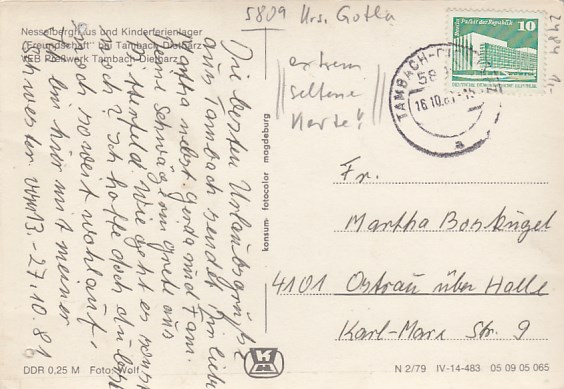 5809 Krs. Gotha
Nesselberghaus und Kinderferienlager
„Freundschaft" bei Tambach Dietharz
VEB Preßwerk Tambach Dietharz
extrem
seltene
Karte!
Berlin, Palast der Republik
10
DEUTSCHE DEMOKRATISCHE REPUBLIK
TAMBACH-DI
58
16.10.81
a
Die besten Urlaubsgrüße
aus Tambach sendet Euch
Agatha nebst Gerda und Fam.
Deine Schwägerin Gretl aus
Wie geht es sonst
noch? Ich hoffe doch du bist
noch soweit wohlauf.
Bin hier mit meiner
Schwester vom 13. - 27.10.81
konsum fotocolor magdeburg
Fr.
Martha Bosküngel
4101 Ostrau über Halle
Karl-Marx Str. 9
DDR 0,25 M Foto: Wolf
N 2/79 IV-14-483 05 09 05 065